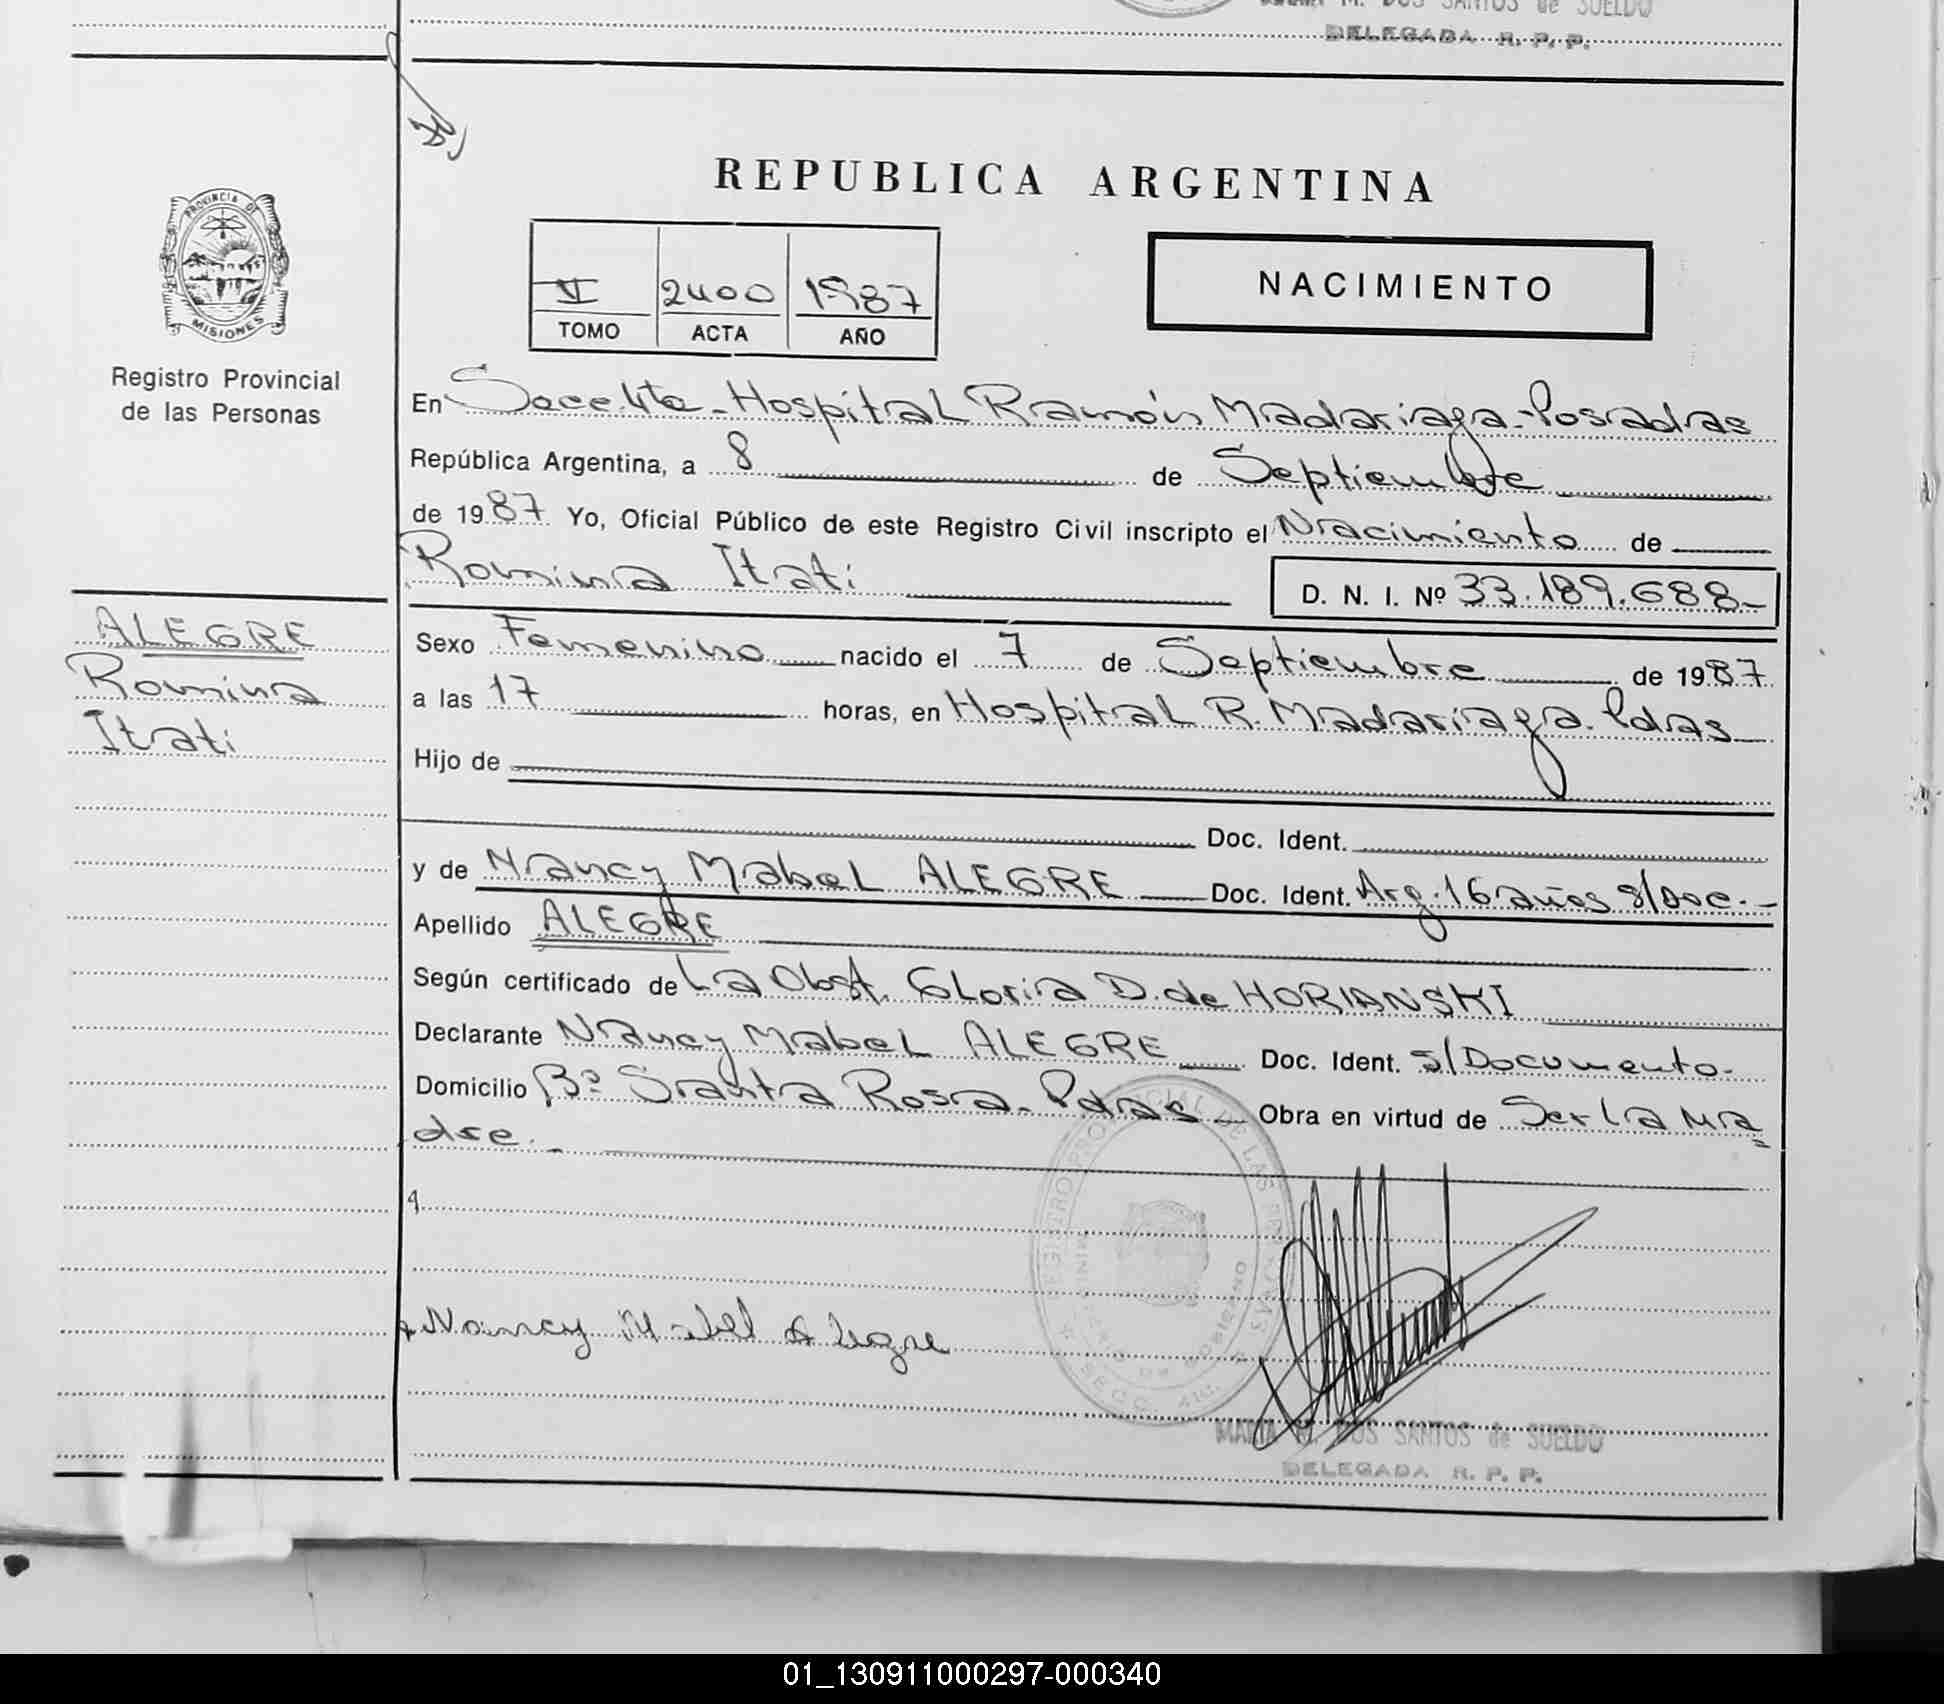 MARIA M. DOS SANTOS de SUELDO
DELEGADA R. P. P.
REPUBLICA ARGENTINA
PROVINCIA DE
MISIONES
Registro Provincial
de las Personas
VI 2400 1987
TOMO ACTA AÑO
NACIMIENTO
En Hospital Ramón Madariaga - Posadas
República Argentina, a 8 de Septiembre
de 1987 Yo, Oficial Público de este Registro Civil inscripto el Nacimiento de
Romina Itati
D. N. I. Nº 33.189.688-
ALEGRE
Romina
Itati
Sexo Femenino nacido el 7 de Septiembre de 1987
a las 17 horas, en Hospital R. Madariaga. Pdas
Hijo de
Doc. Ident.
y de Nancy Mabel ALEGRE Doc. Ident. Arg. 16 años s/Doc.-
Apellido ALEGRE
Según certificado de La Obst. Gloria D. de HORIANSKI
Declarante Nancy Mabel ALEGRE Doc. Ident. s/Documento-
Domicilio Bº Santa Rosa - Pdas Obra en virtud de Ser la ma
dre.-
Nancy Mabel Alegre
REGISTRO PROVINCIAL DE LAS PERSONAS
MINISTERIO DE GOBIERNO
SECC.
MARIA M. DOS SANTOS de SUELDO
DELEGADA R. P. P.
01_130911000297-000340